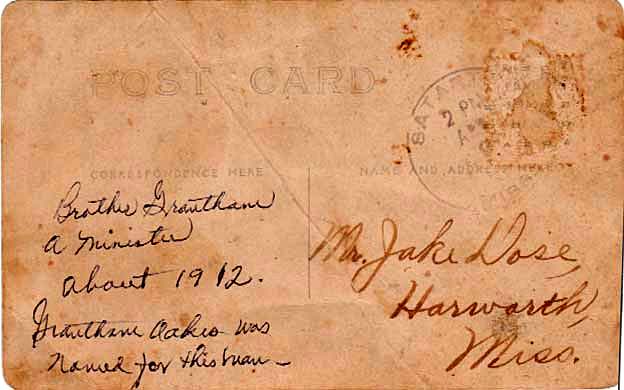 POST CARD
2 PM
MISS
CORRESPONDENCE HERE
NAME AND ADDRESS HERE
Brother Granthane
A Minister
about 1912.
Granthane Oakes was
Named for this man —
Mr. Jake Dose,
Harworth,
Miss.